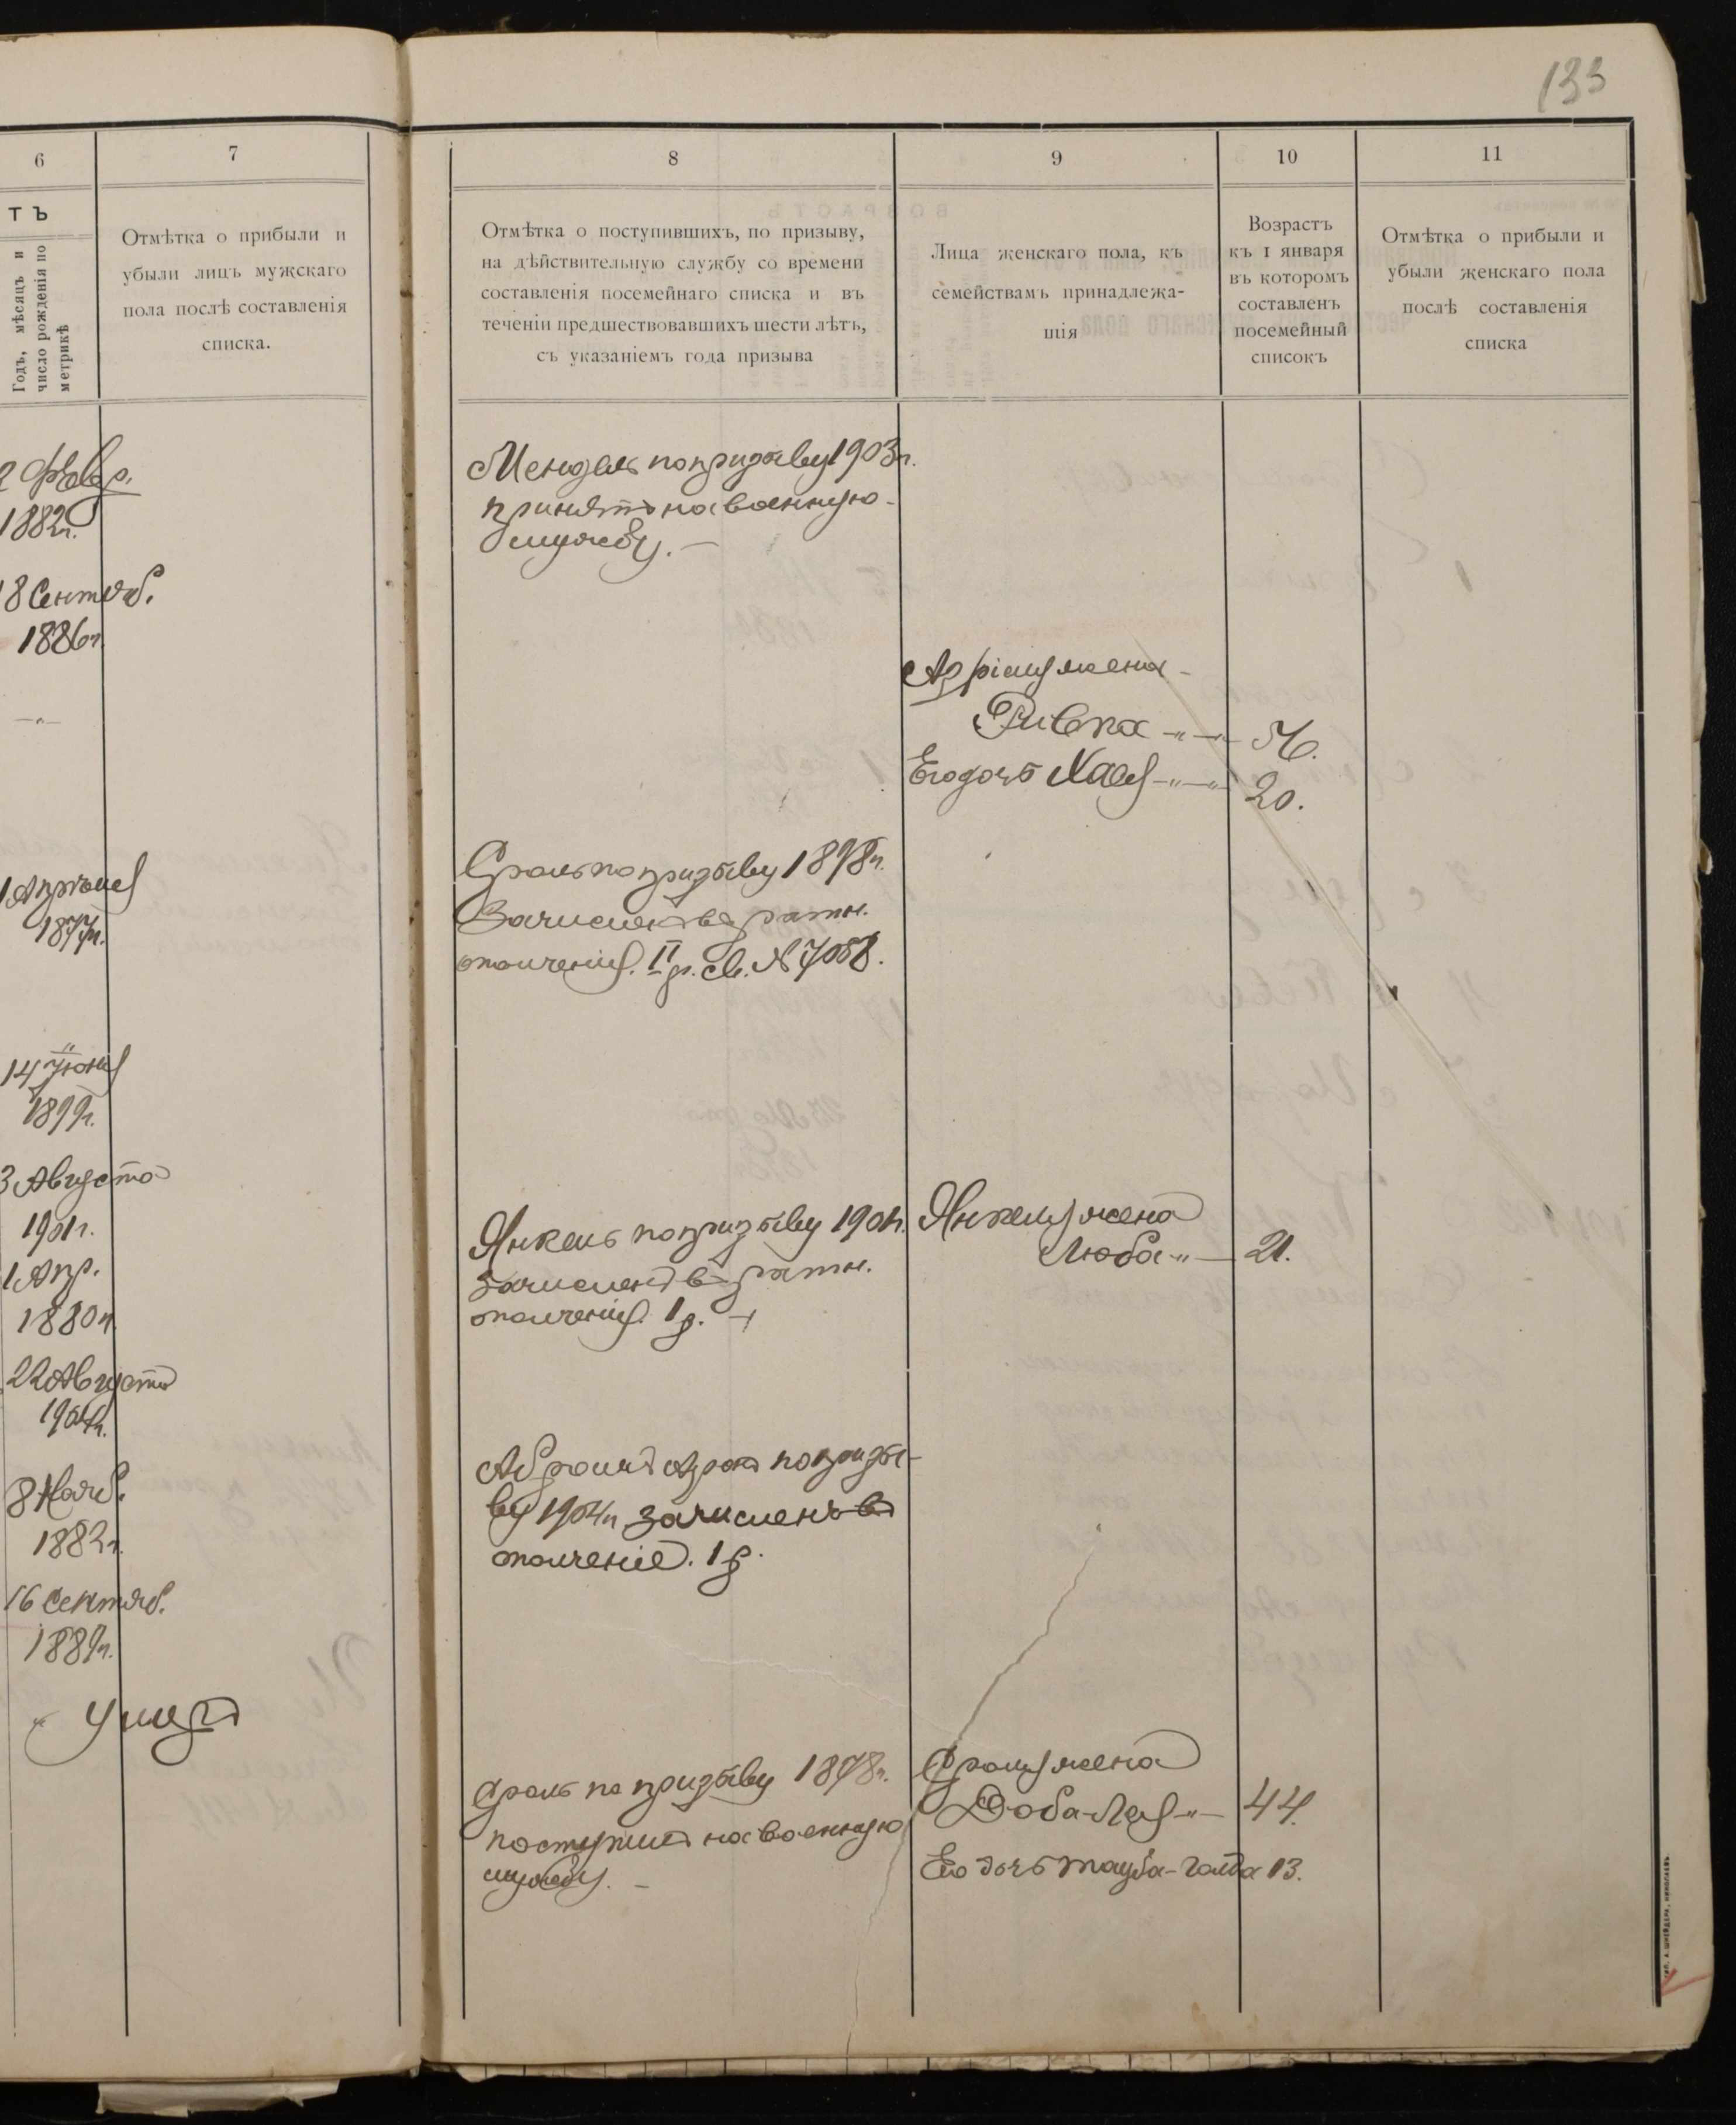 133
6
7
8
9
10
11
тъ
Годъ, мѣсяцъ и
число рожденія по
метрикѣ
Отмѣтка о прибыли и
убыли лицъ мужскаго
пола послѣ составленія
списка.
Отмѣтка о поступившихъ, по призыву,
на дѣйствительную службу со времени
составленія посемейнаго списка и въ
теченіи предшествовавшихъ шести лѣтъ,
съ указаніемъ года призыва
Лица женскаго пола, къ
семействамъ принадлежа-
щія
Возрастъ
къ 1 января
въ которомъ
составленъ
посемейный
списокъ
Отмѣтка о прибыли и
убыли женскаго пола
послѣ составленія
списка
2 Февр.
1882г.
18 Сентяб.
1886г.
1 Апрѣля
1877г.
14 Іюня
1899г.
3 Августа
1901г.
1 Апр.
1880г.
22 Августа
1904г.
8 Нояб.
1882г.
16 Сентяб.
1889г.
Умеръ
Мендель по призыву 1903г.
принятъ на военную
службу. —
Сроль по призыву 1898г.
Зачисленъ въ ратн.
ополченія. II р. св. № 7058.
Янкель по призыву 1901г.
зачисленъ въ ратн.
ополченія. 1 р.
Абрамъ Аронъ по призы-
ву 1904г зачисленъ въ
ополченіе. 1 р.
Сроль по призыву 1878г.
поступилъ на военную
службу. —
жена
Ривка 56.
Его дочь Хая 20.
Янкеля жена
Люба 21.
Сроля жена
Доба-Лея 44.
Его дочь Тауба-Голда 13.